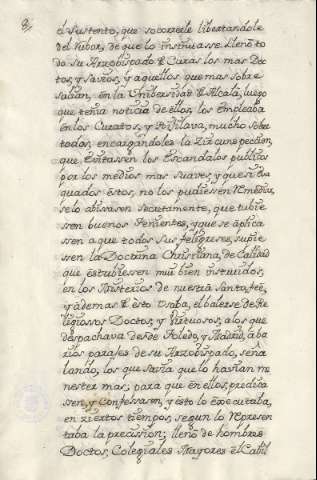 ô Sustento, que socorrele libertandole
del rubor, de que lo insinuasse. Lleno to
do su Arzobispado de Curas los mas Doc
tos, y Savios, y aquellos que mas sobre
salian, en la Universidad de Alcalá, luego
que tenia noticia de ellos, los empleaba
en los Curatos, y Vijilava, mucho sobre
todos, encargandoles la Zircunspeccion,
que evitassen los Escandalos publicos
por los medios mas Suaves, y que si
quados éstos, no los pudiessen remediar,
selo abisasen secretamente, que tubie
ssen buenos Thenientes, y que se aplica
ssen a que todos sus feligreses, supie
ssen la Doctrina Christiana, de Calidad
que estubiessen mui bien instruidos,
en los Misterios de nuestra Santa feé,
y ademas de esto Usaba, el balerse de Re
ligiosos Doctos, y Virtuosos, a los que
despachava desde Toledo, y Madrid, â ba
rios parajes de su Arzobispado, seña
lando, los que savia que lo havian me
nester mas, para que en ellos, predica
ssen, y Confessasen, y esto lo executaba,
en Ziertos tiempos, segun lo represen
taba la precission; lleno de hombres
Doctos, Colegiales Mayores el Cabil